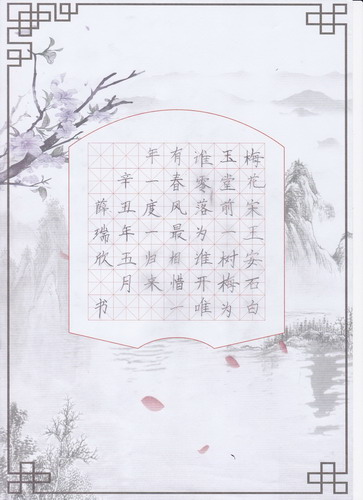 梅花宋王安石白
玉堂前一树梅为
谁零落为谁开唯
有春风最相惜一
年一度一归来
辛丑年五月
薛瑞欣 书